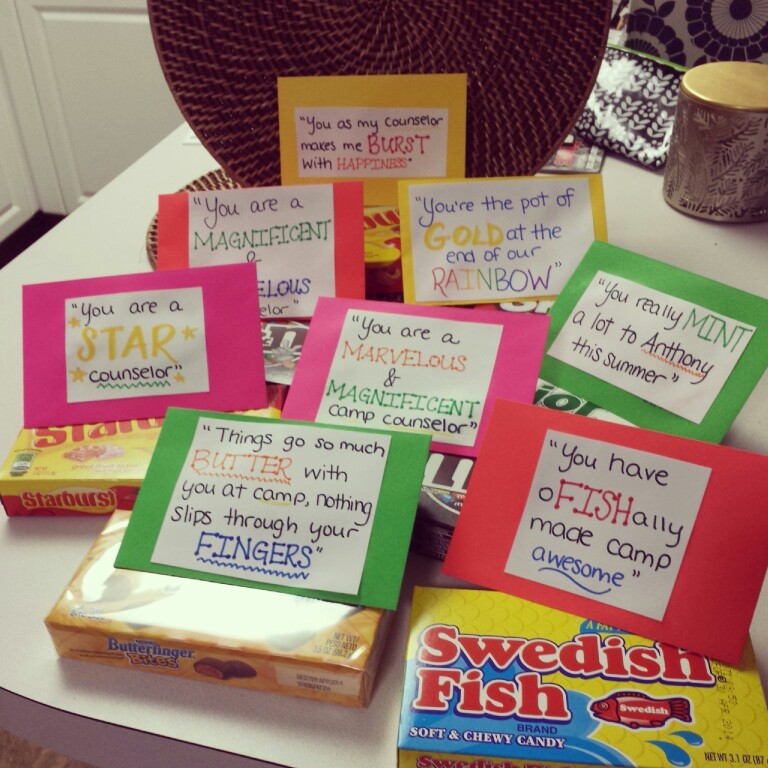 "You as my counselor
makes me BURST
with HAPPINESS"
"You are a
MAGNIFICENT
&
ELOUS
selor"
"You're the pot of
GOLD at the
end of our
RAINBOW"
"You are a
STAR
counselor"
"You are a
MARVELOUS
&
MAGNIFICENT
camp counselor"
"You really MINT
a lot to Anthony
this summer"
"Things go so much
BUTTER with
you at camp, nothing
slips through your
FINGERS"
"You have
oFISHally
made camp
awesome"
Starburst
Butterfinger
Bites
NET WT
Swedish
Fish
Swedish
BRAND
SOFT & CHEWY CANDY
NET WT 3.1 OZ (87